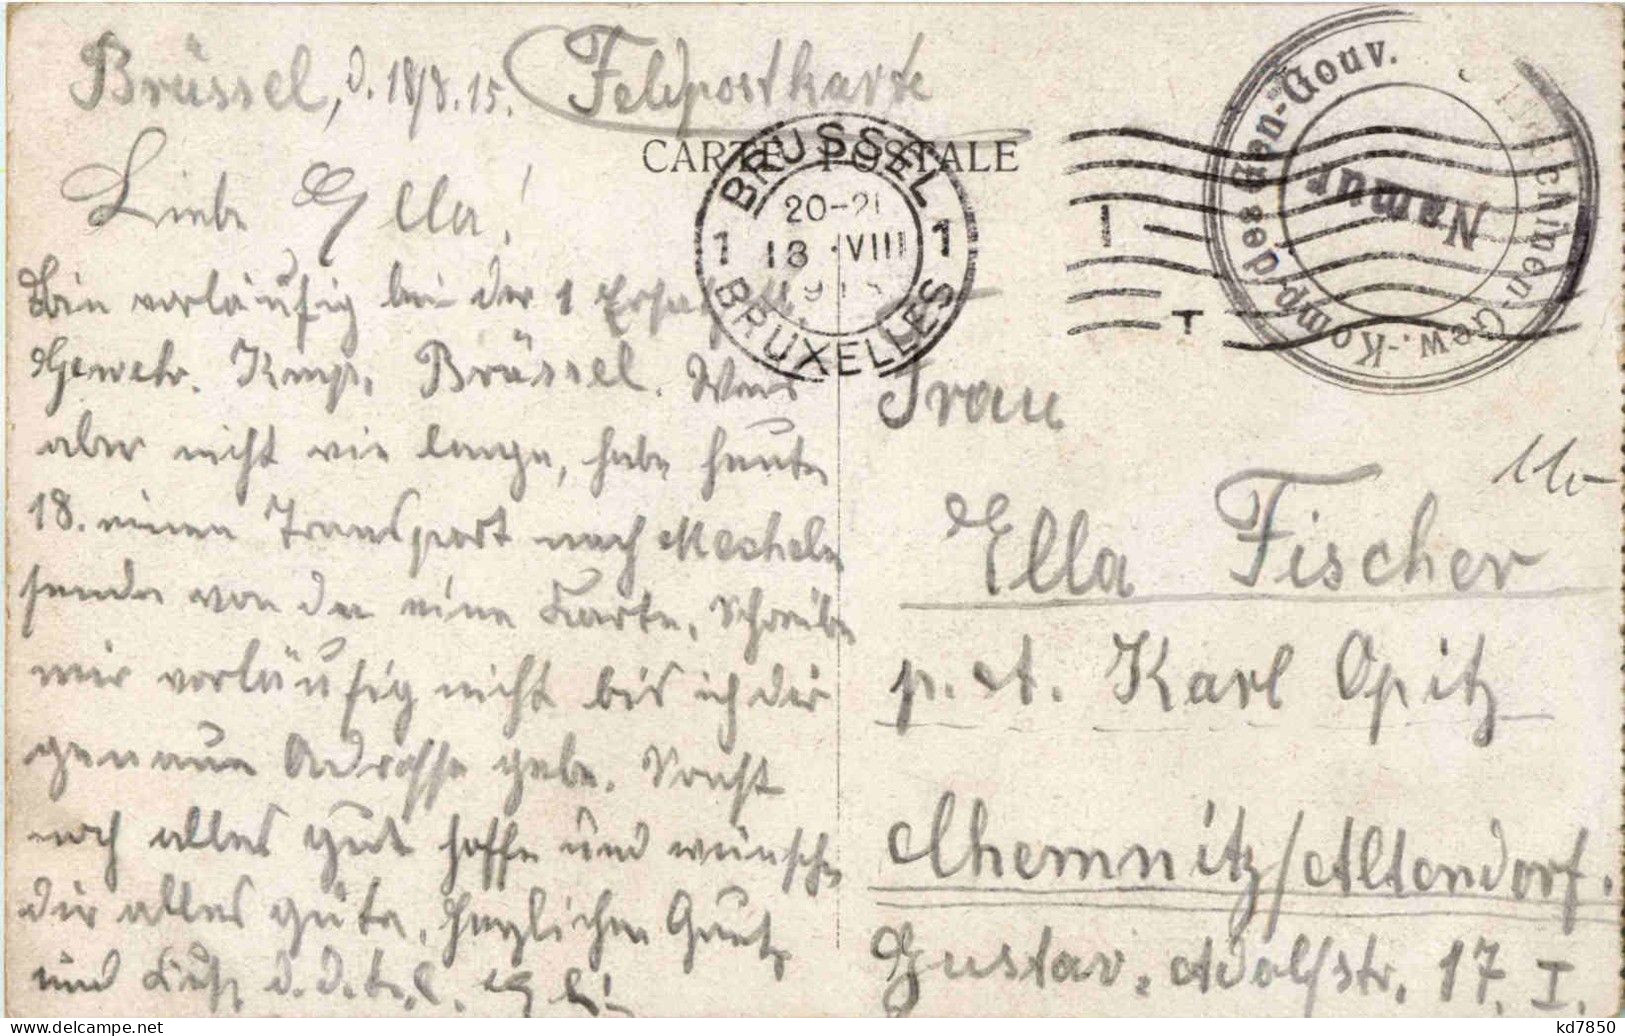 Brüssel, d. 18/8.15. Feldpostkarte
CARTE POSTALE
Liebe Ella!
Bin vorläufig bei der 1 Ersatz
Gewehr. Komp. Brüssel. Weis
aber nicht wie lange, habe heute
18. einen Transport nach Mecheln
sende von da eine Karte. Schreibe
mir vorläufig nicht bis ich dir
genaue Adresse gebe. Sonst
noch alles gut hoffe und wünsche
dir alles gute. Herzlichen Gruß
und Kuß. d. d. l.
BRUSSEL
1 20-21 1
18 VIII
1915
BRUXELLES
Maschinen-Gew.-Komp. des Gen-Gouv.
Namur
Frau
Ella Fischer
p. A. Karl Opitz
Chemnitz/Altendorf.
Gustav. Adolfstr. 17. I.
kd7850